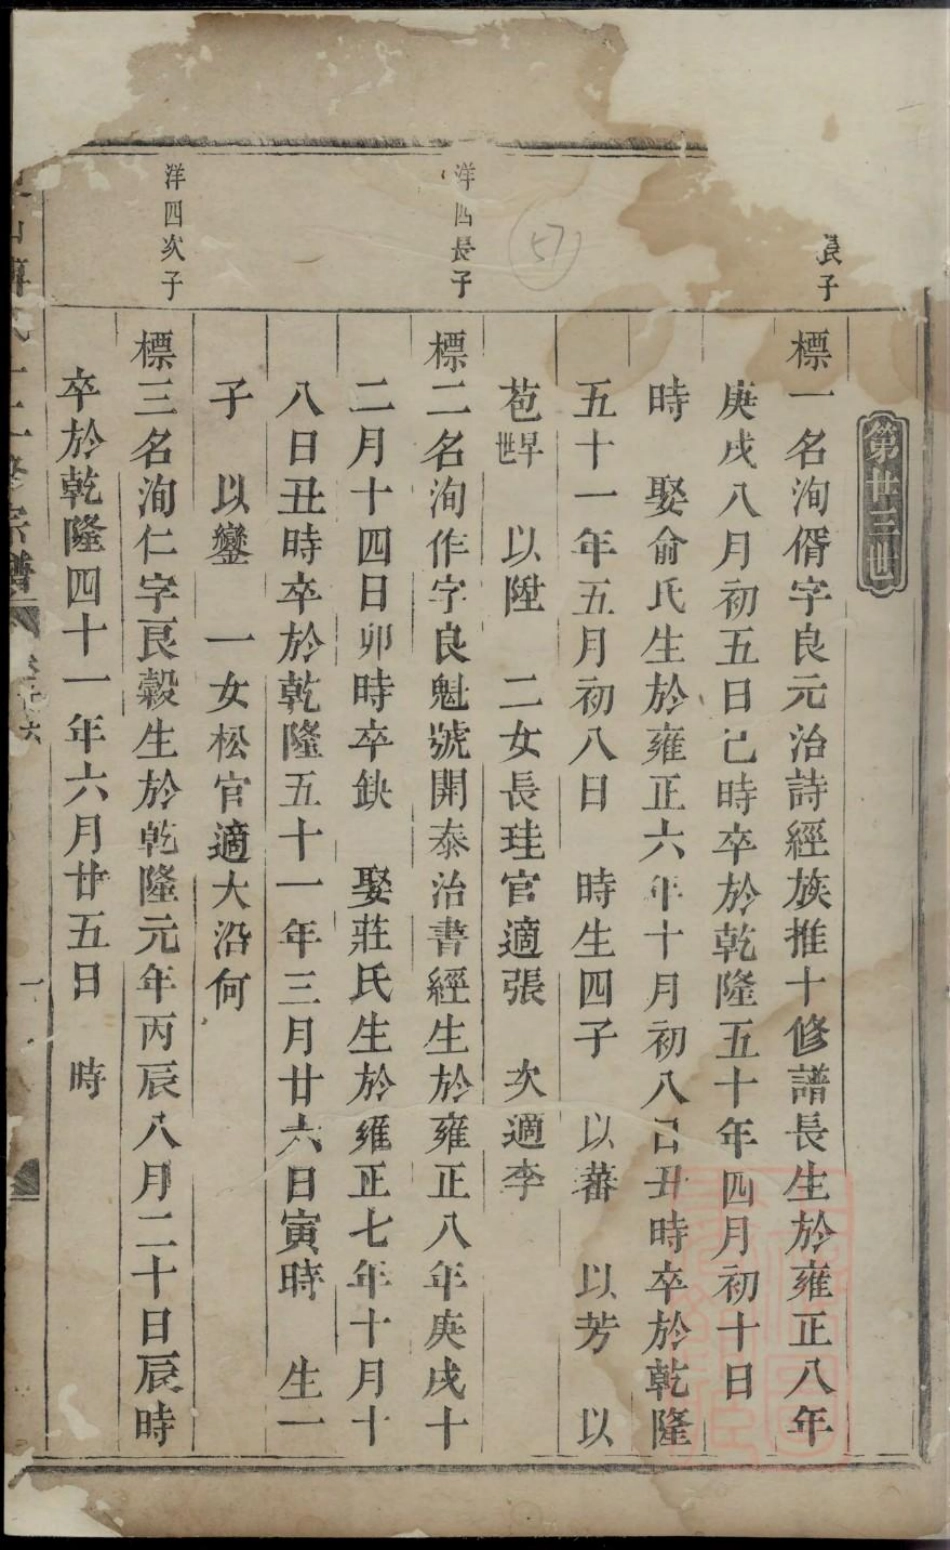 第廿三世
長子
標一名洵偦字良元治詩經族推十修譜長生於雍正八年
庚戌八月初五日己時卒於乾隆五十年四月初十日
時 娶俞氏生於雍正六年十月初八己丑時卒於乾隆
五十一年五月初八日 時生四子 以蕃 以芳 以
苞早世 以陞 二女長珪官適張 次適李
洋四長子
標二名洵作字良魁號開泰治書經生於雍正八年庚戌十
二月十四日卯時卒缺 娶莊氏生於雍正七年十月十
八日丑時卒於乾隆五十一年三月廿六日寅時 生一
子 以鑾 一女松官適大沿何
洋四次子
標三名洵仁字良穀生於乾隆元年丙辰八月二十日辰時
卒於乾隆四十一年六月廿五日 時
57
宗譜
一